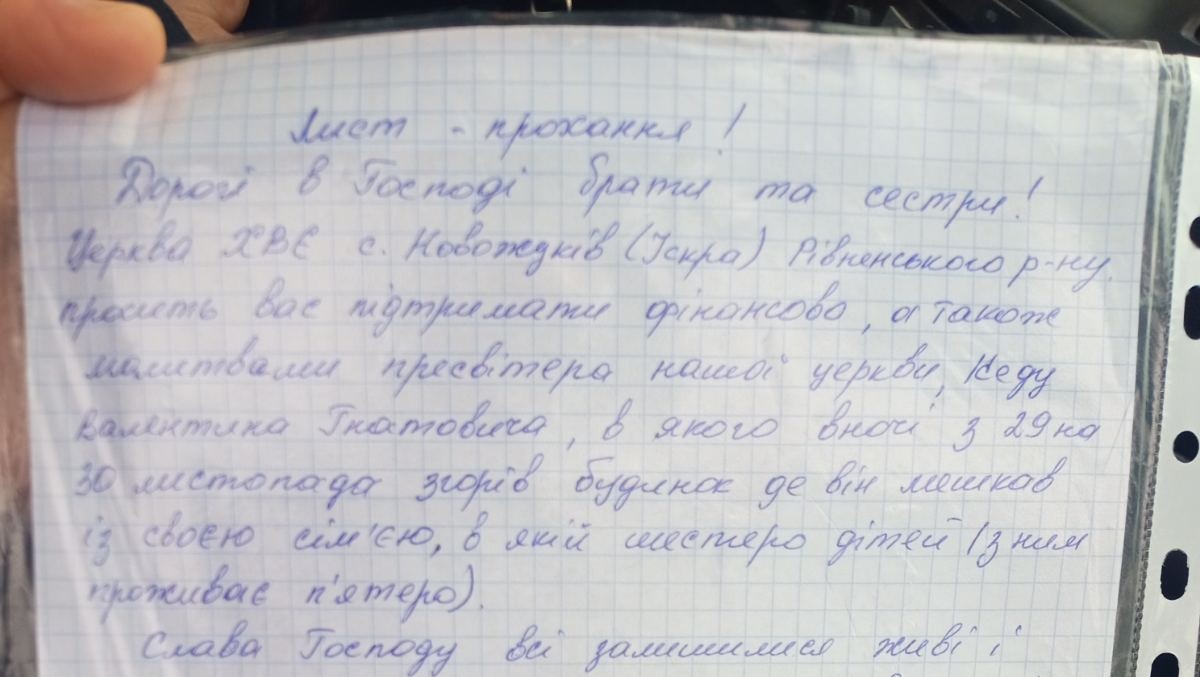 Лист - прохання!
Дорогі в Господі брати та сестри!
Церква ХВЄ с. Новожуків (Іскра) Рівненського р-ну.
просить вас підтримати фінансово, а також
молитвами пресвітера нашої церкви, Кеду
Валентина Гнатовича, в якого вночі з 29 на
30 листопада згорів будинок де він мешкав
із своєю сім'єю, в якій шестеро дітей (з ним
проживає п'ятеро).
Слава Господу всі залишилися живі і